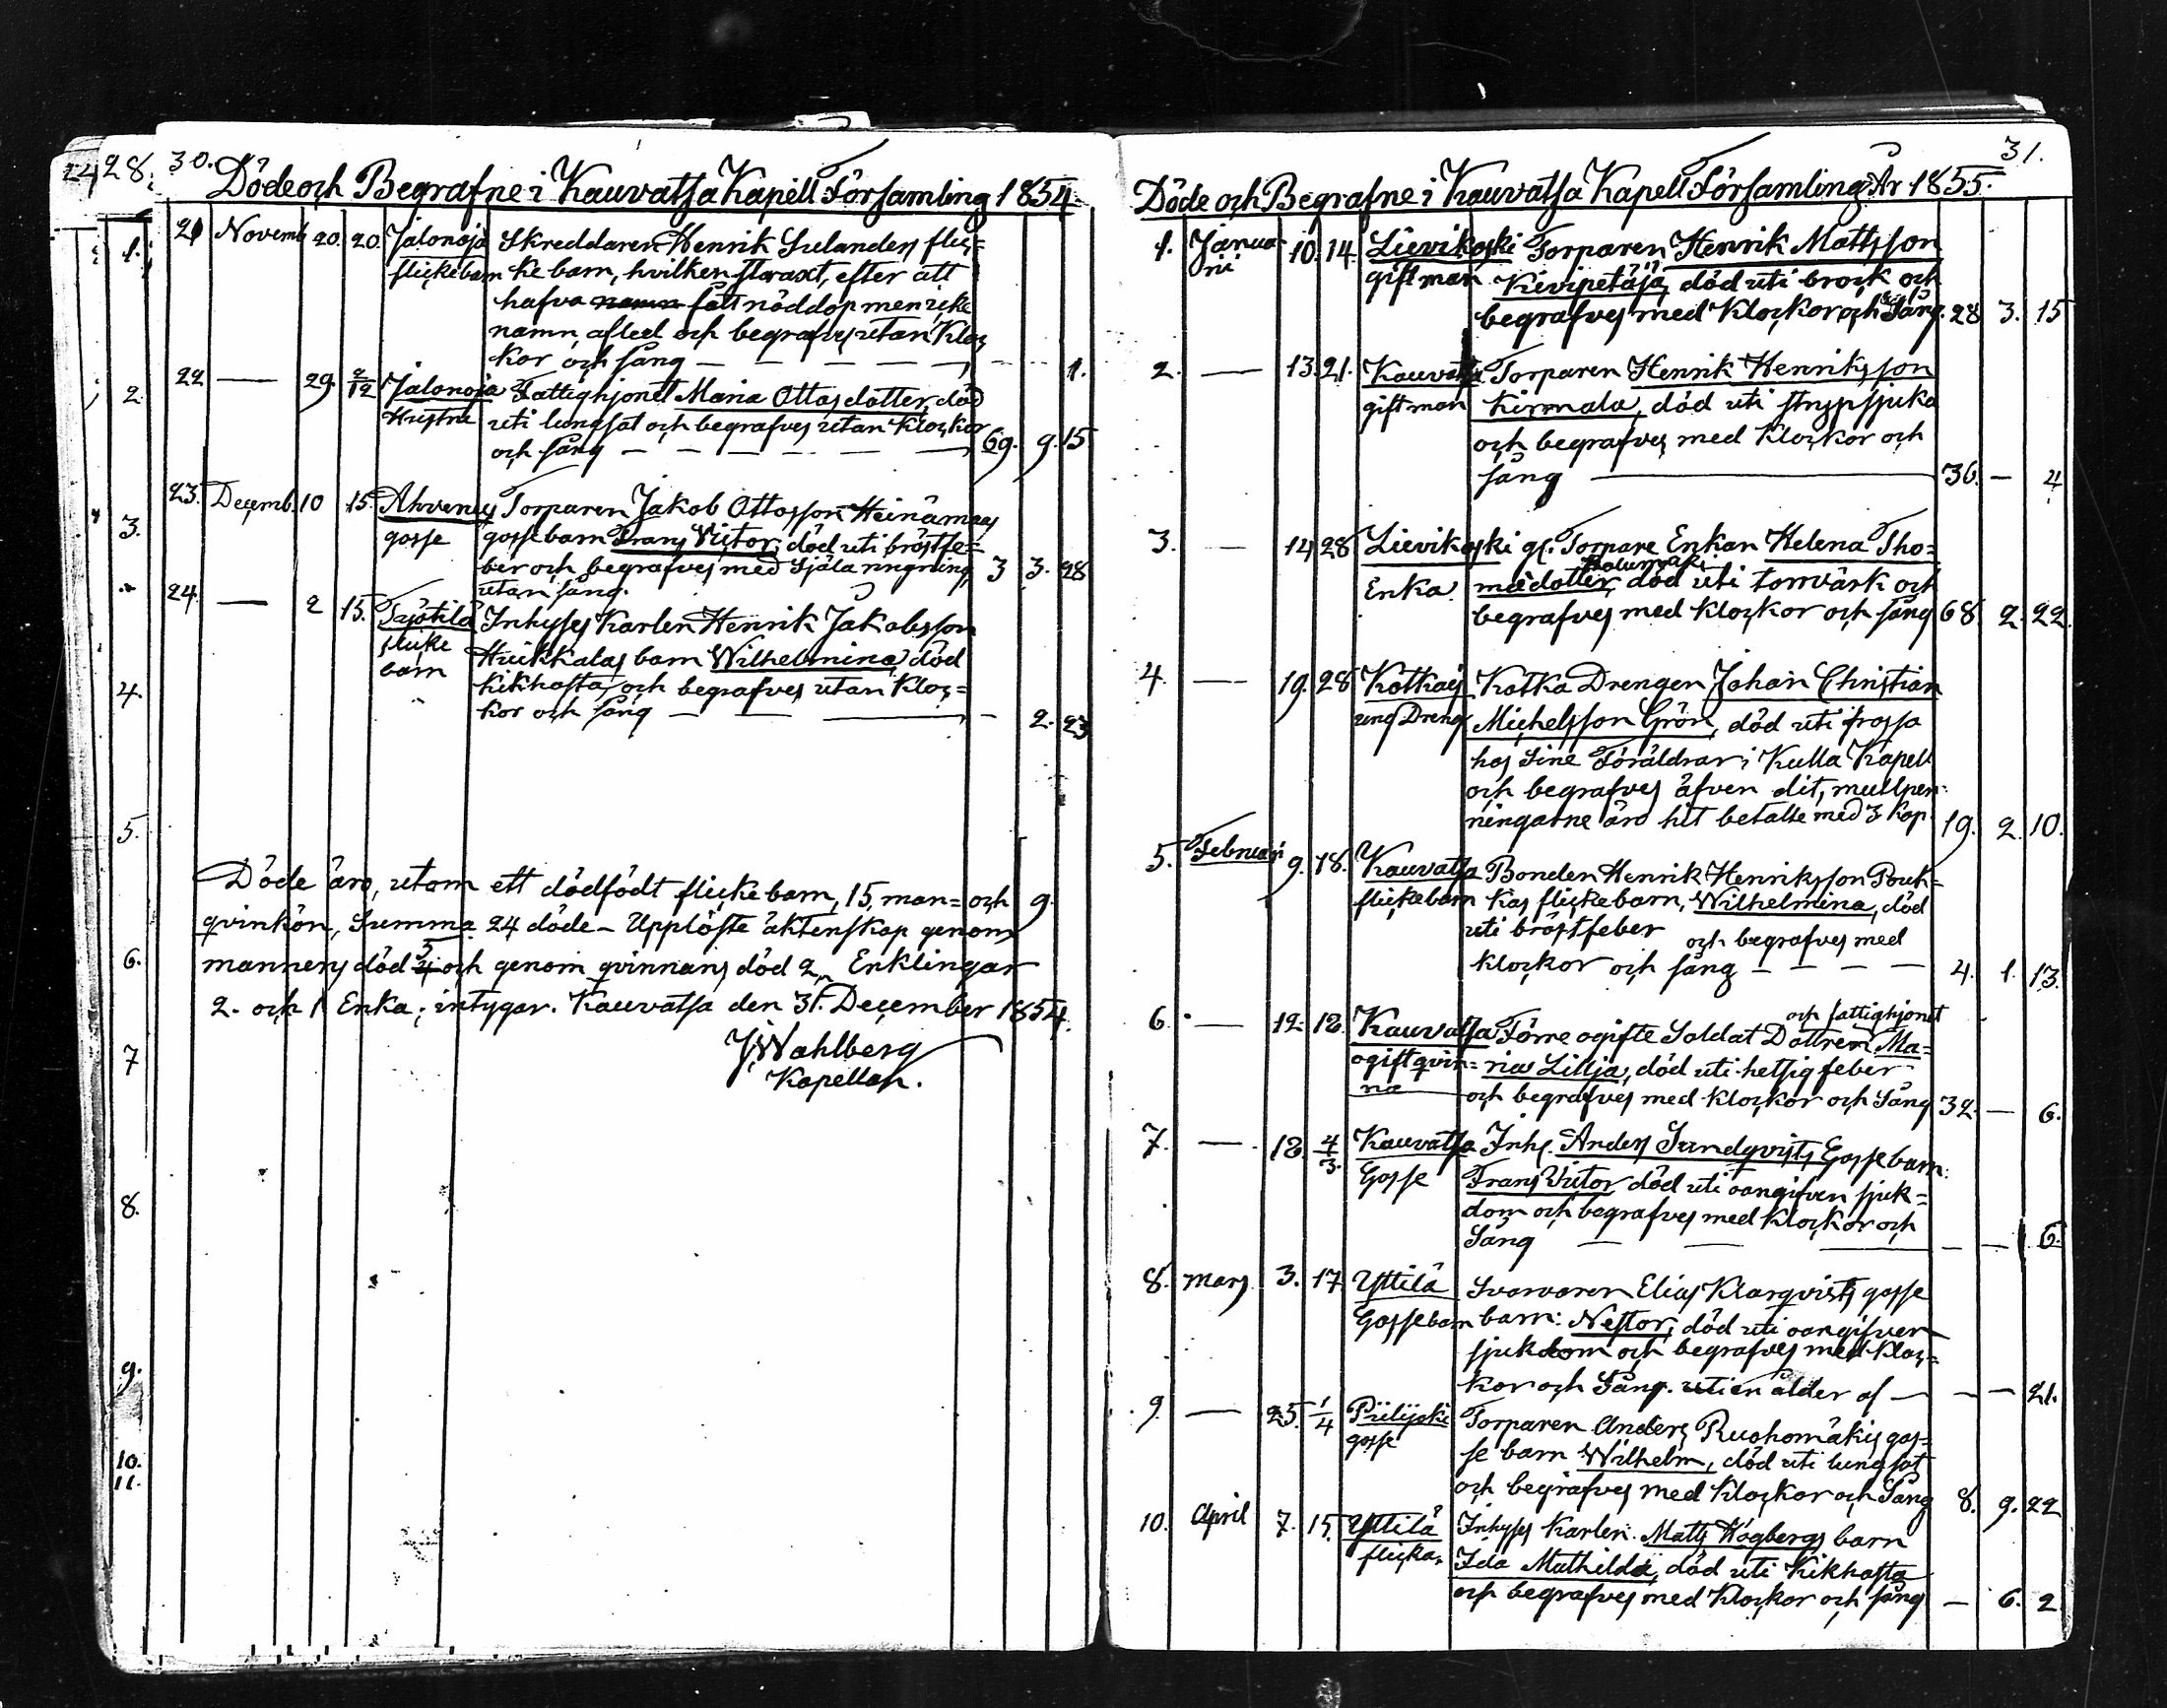 24 28. 30.
Döde och Begrafne i Kauvatsa Kapell Församling 1854
21 Novemb. 20. 20. Jalonoja Skreddaren Henrik Sulanders flic=
flickebarn ke barn, hvilken straxt, efter att
hafva namn fått nöddop men icke
namn, afled och begrafves utan Kloc
kor och sång — — — — — 1.
22 — 29. 2/12 Jalonoja Fattighjonet Maria Ottasdotter, död
Hustru uti lungsot och begrafves utan Klockor
och sång — — — — — 69. 9. 15
23. Decemb. 10 15. Ahvenus Torparen Jakob Ottosson Heinämaas
gosse gossebarn Frans Victor, död uti bröstfe=
ber och begrafves med Själaringning 3 3. 28
utan sång.
24. — 2 15. Inhyses Karlen Henrik Jakobsson
flicke Huikkalas barn Wilhelmina, död
barn kikhosta, och begrafves utan Kloc=
kor och sång — — — — 2. 23
Döde äro, utom ett dödfödt flickebarn, 15, man= och 9.
qvinkön, Summa 24 döde – Upplöste äktenskap genom
mannens död 4 5 och genom qvinnans död 2, Enklingar
2. och 1 Enka; intygar. Kauvatsa den 31. December 1854.
J Wahlberg
Kapellan.
1.
2.
3.
4.
5.
6.
7
8.
9.
10.
11.
31.
Döde och Begrafne i Kauvatsa Kapell Församling År 1855.
1. Janua- 10. 14. Lievikoski Torparen Henrik Mattsson
rii gift man Kivipetäjä, död uti brock och
begrafves med Klockor och Sång. 28 3. 15
2. — 13. 21. Kauvatsa Torparen Henrik Henriksson
gift man Kirmala, död uti strypsjuka
och begrafves med Klockor och
sång — 36. — 4
3. — 14 28 Lievikoski gl. Torpare Enkan Helena Tho=
Enka. madotter, död uti torrvärk och
begrafves med klockor och sång 68. 2. 22.
4. — 19. 28 Kotkais Kotka Drengen Johan Christian
ung Dreng Michelsson Grön, död uti frossa
hos Sine Föräldrar i Kulla Kapell
och begrafves äfven dit, mullpen=
ningarne äro hit betalte med 3 Kop. 19. 2. 10.
5. Februari 9. 18. Kauvatsa Bonden Henrik Henriksson Pouk=
flickebarn kas flickebarn, Wilhelmina, död
uti bröstfeber och begrafves med
klockor och sång — — — — 4. 1. 13.
och fattighjonet
6. — 12. 18. Kauvatsa Förre ogifte Soldat Dottren Ma=
ogift qvin= ria Lillja, död uti hetsig feber
na och begrafves med klockor och Sång 32. — 6.
7. — 18. 4/3. Kauvatsa Inh. Anders Sundqvists Gossebarn:
Gosse Frans Victor, död uti oangifven sjuk=
dom och begrafves med Klockor och
Sång — — — — — 6.
8. Mars 3. 17 Yttilä Svarvaren Elias Klarqvists gosse
Gossebarn barn: Nestor, död uti oangifven
sjukdom och begrafves med Kloc=
kor och Sång. uti en ålder af — — — 21.
9. — 25. 1/4 Piilijoki Torparen Anders Ruohomäkis gos=
gosse se barn Wilhelm, död uti lungsot
och begrafves med Klockor och Sång 8. 9. 22
10. April 7. 15. Yttilä Inhyses Karlen Matts Högbergs barn
flicka, Ida Mathilda, död uti Kikhosta
och begrafves med Klockor och sång — 6. 2